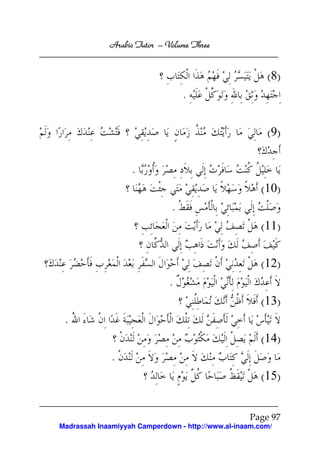 Arabic Tutor – Volume Three
(8) هَلْ يَتَيَسَّرُ لِيْ فَهْمُ هَذَا الْكِتَابِ ؟
اِجْتَهِدْ وَثِقْ بِاللهِ وَتَوَكَّلْ عَلَيْهِ .
(9) مَالِيْ مَا رَأَيْتُكَ مُنْذُ زَمَانٍ يَا صَدِيْقِيْ ؟ فَتَّشْتُ عِنْدَكَ مِرَارًا وَلَمْ
أَجِدْكَ؟
يَا خَلِيْلُ كُنْتُ سَافَرْتُ إِلَي بِلاَدِ مِصْرَ وَأُوْرُبَّا .
(10) أَهْلاً وَسَهْلاً يَا صَدِيْقِيْ مَتَي جِئْتَ هَهُنَا ؟
وَصَلْتُ إِلَي بَمْبَائِيْ بِالْأَمْسِ فَقَطْ .
(11) هَلْ تَصِفُ لِيْ مَا رَأَيْتَ مِنَ الْعَجَائِبِ ؟
كَيْفَ أَصِفُ لَكَ وَأَنْتَ ذَاهِبٌ إِلَي الدُّكَّانِ ؟
(12) هَلْ تَعِدُنِيْ أَنْ تَصِفَ لِيْ أَحْوَالَ السَّفَرِ بَعْدَ الْمَغْرِبِ فَأَحْضُرَ عِنْدَكَ؟
لاَ أَعِدُكَ الْيَوْمَ لِأَنِّيْ الْيَوْمَ مَشْغُوْلٌ .
(13) أَفَلاَ أَظُنُّ أَنَّكَ تُمَاطِلُنِيْ ؟
لاَ تَيْأَسْ يَا أَخِيْ لَأَصِفَنَّ لَكَ تِلْكَ الْأَحْوَالَ الْعَجِيْبَةَ غَدًا اِنْ شَاءَ الله .
(14) أَلَمْ يَصِلْ اِلَيْكَ مَكْتُوْبٌ مِنْ مِصْرَ وَمِنْ لَنْدَنْ ؟
مَا وَصَلَ إِلَيَّ كِتَابٌ مِنْكَ لاَ مِنْ مِصْرَ وَلاَ مِنْ لَنْدَنْ .
(15) هَلْ تَيْقَظُ صَبَاحًا كُلَّ يَوْمٍ يَا خَالِدُ ؟
Page 97
Madrassah Inaamiyyah Camperdown - http://www.al-inaam.com/